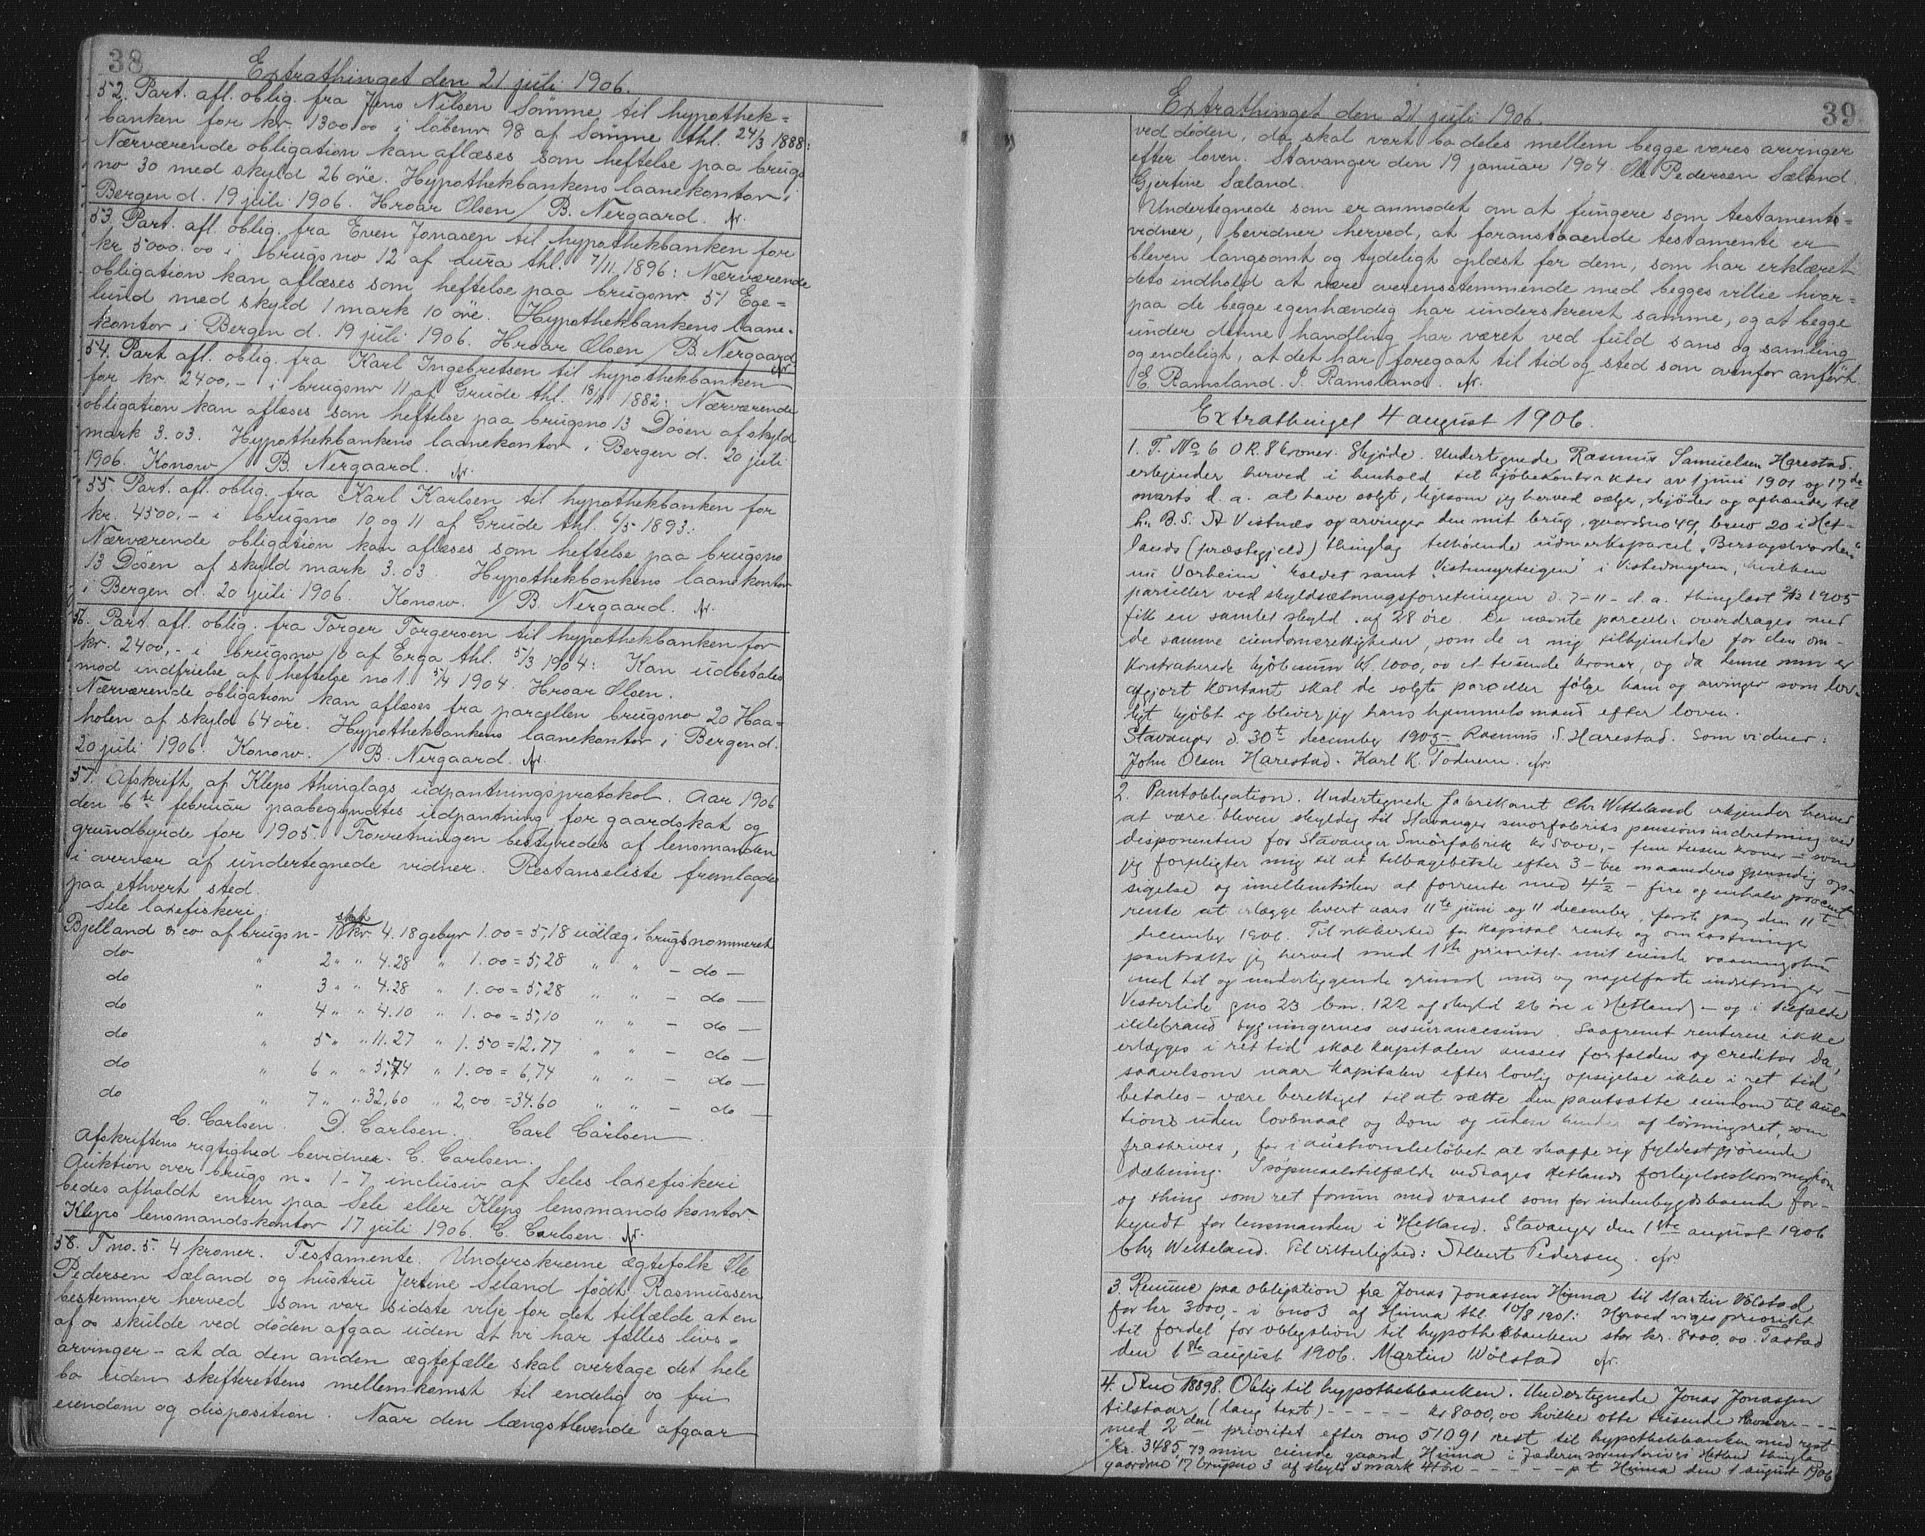 38
Extrathinget den 21 juli 1906.
52. Part. afl. oblig. fra Jens Nilsen Sömme til hypothek=
banken for kr. 1300.00 i löbenr 98 af Sömme thl. 24/3 1888:
Nærværende obligation kan aflæses som heftelse paa brugs
no 30 med skyld 26 öre. Hypothekbankens laanekontor i
Bergen d. 19 juli 1906. Hroar Olsen / B. Nergaard.
53. Part. afl. oblig. fra Even Jonasen til hypothekbanken for
kr. 5000.00 i brugsno 12 af Lura thl. 7/11 1896: Nærværende
obligation kan aflæses som heftelse paa brugsnr. 51 Ege=
lund med skyld 1 mark 10 öre. Hypothekbankens laane-
kontor i Bergen d. 19 juli 1906. Hroar Olsen / B. Nergaard
54. Part afl. oblig. fra Karl Ingebretsen til hypothekbanken
for kr. 2400,- i brugsnr 11 af Grude thl. 18/11 1882: Nærværende
obligation kan aflæses som heftelse paa brugsno 13 Dösen af skyld
mark 3.03. Hypothekbankens laanekontor i Bergen d. 20 juli
1906. Konow / B. Nergaard.
55. Part. afl. oblig. fra Karl Karlsen til hypothekbanken for
kr. 4500,- i brugsno 10 og 11 af Grude thl. 6/5 1893:
Nærværende obligation kan aflæses som heftelse paa brugsno
13 Dösen af skyld mark 3.03. Hypothekbankens laanekontor
i Bergen d. 20 juli 1906. Konow. / B. Nergaard.
56. Part. afl. oblig. fra Torger Torgersen til hypothekbanken for
kr. 2400,- i brugsno 10 af Erga thl. 5/3 1904: Kan udbetales
mod indfrielse af heftelse no 1. 5/4 1904. Hroar Olsen.
Nærværende obligation kan aflæses fra parcellen brugsno 20 Haa=
holen af skyld 64 öre. Hypothekbankens laanekontor i Bergen d.
20 juli 1906. Konow. / B. Nergaard.
57. Afskrift af Kleps thinglags udpantningsprotokol. Aar 1906
den 6te februar paabegyndtes udpantning for gaardskat og
grundbyrde for 1905. Forretningen bestyredes af lensmanden
i overvær af undertegnede vidner. Restanseliste fremlagdes
paa ethvert sted.
Sele laxefiskeri:
skat
Bjelland & co af brugs n- 1 kr 4.18 gebyr 1.00 = 5,18 udlæg i brugsnommeret
do " 2 " " 4.28 " 1.00 = 5,28 " " - do -
do " 3 " " 4.28 " 1.00 = 5,28 " " - do -
do " 4 " " 4.10 " 1.00 = 5,10 " " - do -
do " 5 " " 11.27 " 1.50 = 12,77 " " - do -
do " 6 " " 5,74 " 1.00 = 6,74 " " - do -
do " 7 " " 32,60 " 2,00 = 34.60 " " - do -
C. Carlsen. D. Carlsen. Carl Carlsen
Afskriftens rigtighed bevidner. C. Carlsen.
Auktion over brugs n. 1-7 inclusiv af Seles laxefiskeri
bedes afholdt enten paa Sele eller Kleps lensmandskontor.
Kleps lensmandskontor 17 juli 1906. C. Carlsen.
58. T no. 5. 4 kroner. Testamente. Underskrevne ægtefolk Ole
Pedersen Sæland og hustru Jertine Seland född Rasmussen
bestemmer herved som vor sidste vilje for det tilfælde at en
af os skulde ved döden afgaa uden at vi har fælles livs=
arvinger - at da den anden ægtefælle skal overtage det hele
bo uden skifterettens mellemkomst til endelig og fri
eiendom og disposition. Naar den længstlevende afgaar
39
Extrathinget den 21 juli 1906.
ved döden, da skal vort bo deles mellem begge vores arvinger
efter loven. Stavanger den 19 januar 1904. Ole Pedersen Sæland
Gjertine Sæland.
Undertegnede som er anmodet om at fungere som testaments=
vidner, bevidner herved, at foranstaaende testamente er
bleven langsomt og tydeligt oplæst for dem, som har erklæret
dets indhold at være overensstemmende med begges villie hvor=
paa de begge egenhændig har underskrevet samme, og at begge
under denne handling har været ved fuld sans og samling
og endeligt, at det har foregaat til tid og sted som ovenfor anfört.
E. Ramsland. J. Ramsland.
Extrathinget 4 august 1906.
1. T. No 6 OR. 8 kroner. Skjöde. Undertegnede Rasmus Samuelsen Harestad
erkjender herved i henhold til kjöbekontrakter av 1 juni 1901 og 17de
marts d. a. at have solgt, ligesom jeg herved sælger, skjöder og afhænder til
hr. B. S. A Vistnæs og arvinger den mit brug, gaardsno 49, brno 20 i Het-
lands (præstegjeld) thinglag tilhörende udmarksparcel "Bersagelvarden"
nu Vorheim kaldet samt "Vistemyrteigen" i Vistedmyren, hvilken
parceller ved skyldsætningsforretningen d. 7-11- d. a. thinglæst 2/12 1905
fik en samlet skyld af 28 öre. De nævnte parceller overdrages med
de samme eiendomsrettigheder, som de er mig tilhjemlede for den om-
kontraherede kjöbesum kr. 1000,00 et tusinde kroner, og da denne sum er
afgjort kontant skal de solgte parceller fölge ham og arvinger som lov-
ligt kjöbt og bliver jeg hans hjemmelsmand efter loven.
Stavanger d. 30te december 1905 Rasmus S. Harestad. Som vidner:
John Olsen Harestad. Karl K. Todnem.
2. Pantobligation. Undertegnede fabrikant Chr. Witteland erkjender herved
at være bleven skyldig til Stavanger smörfabriks pensionsindretning ved
disponenten for Stavanger Smörfabrik kr 5000,- fem tusen kroner - som
jeg forpligter mig til at tilbagebetale efter 3 - tre maaneders gjensidig op-
sigelse og imellemtiden at forrente med 4½ - fire og enhalv procent
rente at erlægge hvert aars 11te juni og 11 december, förste gang den 11te
december 1906. Til sikkerhed for kapital renter og omkostninger
pantsætter jeg herved med 1ste prioritet mit eiende vaaningshus
med til og underliggende grund mur og nagelfaste indretninger -
Vesterlide gno 23 bn. 122 af skyld 26 öre i Hetland - og i tilfælde
ildebrand bygningernes assurancesum. Saafremt renterne ikke
erlægges i ret tid skal kapitalen ansees forfalden og creditor da,
saavelsom naar kapitalen efter lovlig opsigelse ikke i ret tid
betales - være berettiget til at sætte den pantsatte eiendom til auk-
tions uden lovmaal og dom og uden hinder af lösningsret som
fraskrives, for i auctionsbelöbet at skaffe sig fyldestgjörende
dækning. I sögsmaalstilfælde vedtages Hetlands forligelseskommission
og thing som ret forum med varsel som for indenbygdsboende for-
kyndt for lensmanden i Hetland. Stavanger den 1ste august 1906
Chr Witteland. Til vitterlighed: Albert Pedersen.
3. Remme paa obligation fra Jonas Jonassen Hinna til Martin Wölstad
for kr. 3000,- i bno 3 af Hinna thl. 10/8 1901: Herved viges prioritet
til fordel for obligation til hypothekbanken stor kr. 8000,00. Tastad
den 1ste august 1906. Martin Wölstad
4. Stno 18898. Oblig til hypothekbanken. Undertegnede Jonas Jonassen
tilstaar (lang text) - - - - - kr 8000,00 hvilke otte tusinde kroner - - -
med 2den prioritet efter ono 51091 rest til hypothekbanken med rest
kr. 3485,79 min eiende gaard Hinna i Jæderen sorenskriveri Hetland thinglag
gaardno 17 brugsno 3 af skyld 3 mark 41 öre - - - - - p t Hinna den 1 august 1906